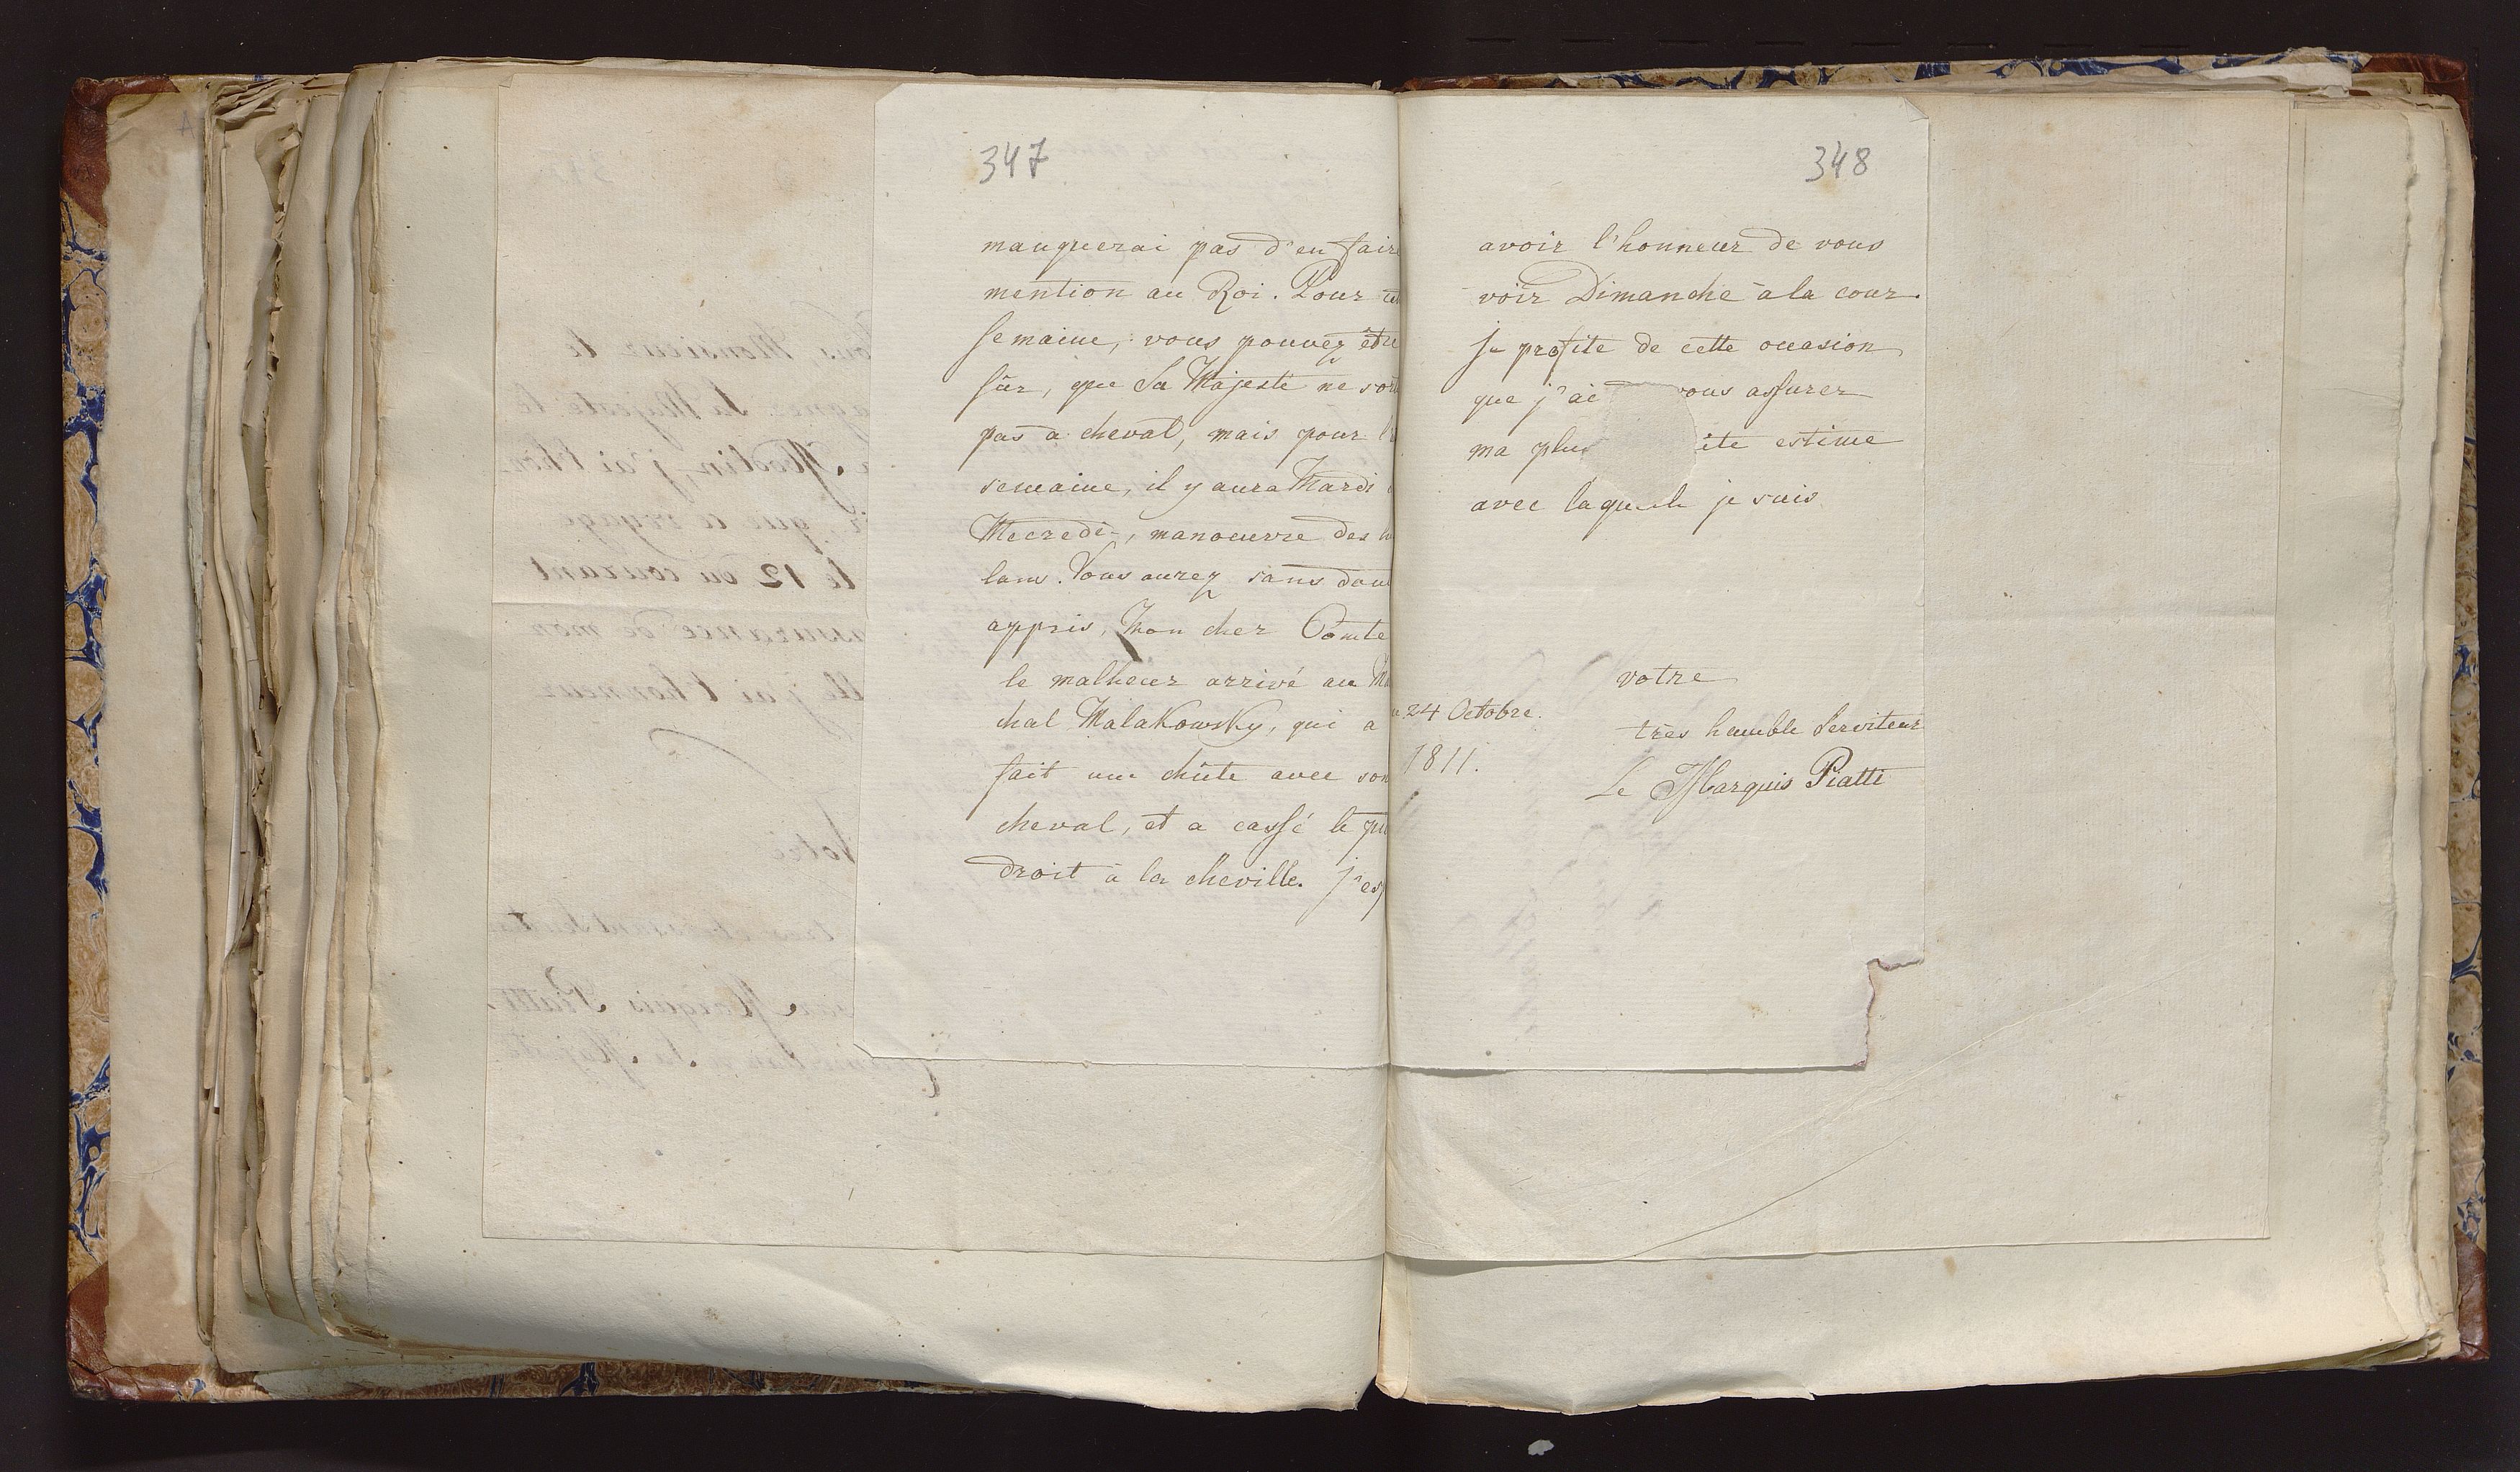 347
manquerai pas d'en faire
mention au Roi. Pour
semaine, vous pouvez être
sûr, que Sa Majesté ne
pas à cheval, mais pour
semaine, il y aura Mardi
Mecredi, manoeuvre des
lans. Vous aurez sans
appris, Mon cher Comte
le malheur arrivé au
chal Malakowsky, qui a
fait une chûte avec son
cheval, et a cassé le
droit à la cheville.
348
avoir l'honneur de vous
voir Dimanche à la cour.
je profite de cette occasion
que j'ai vous assurer
ma plus estime
avec laquele je suis
votre
24 Octobre.
1811.
très humble Serviteur
Le Marquis Piatti
Monsieur le
Sa Majesté le
Modlin, j'ai
que ce voyage
le 12 du courant
de mon
j'ai l'honneur
Marquis Piatti